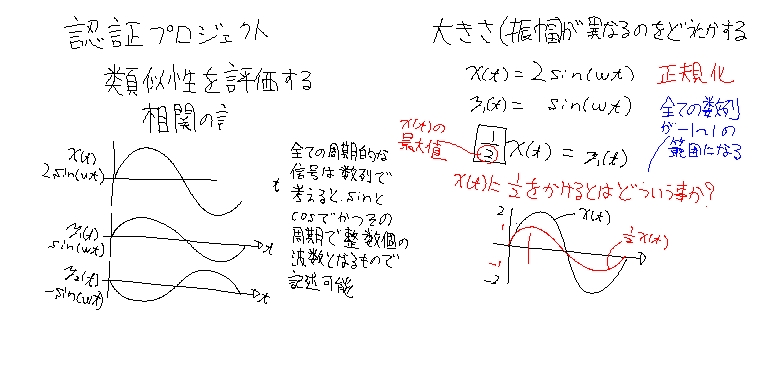 認証プロジェクト
類似性を評価する
相関の話
x(t)
2sin(ωt)
t
y₁(t)
sin(ωt)
t
y₂(t)
-sin(ωt)
t
全ての周期的な
信号は数列で
考えると、sinと
cosでかつその
周期で整数個の
波数となるもので
記述可能
大きさ(振幅)が異なるのをどうにかする
x(t) = 2sin(ωt) 正規化
y₁(t) = sin(ωt)
全ての数列
が-1~1の
範囲になる
x(t)の
最大値
1/2 x(t) = y₁(t)
x(t)に1/2をかけるとはどういう事か?
2
1
-1
-2
x(t)
1/2 x(t)